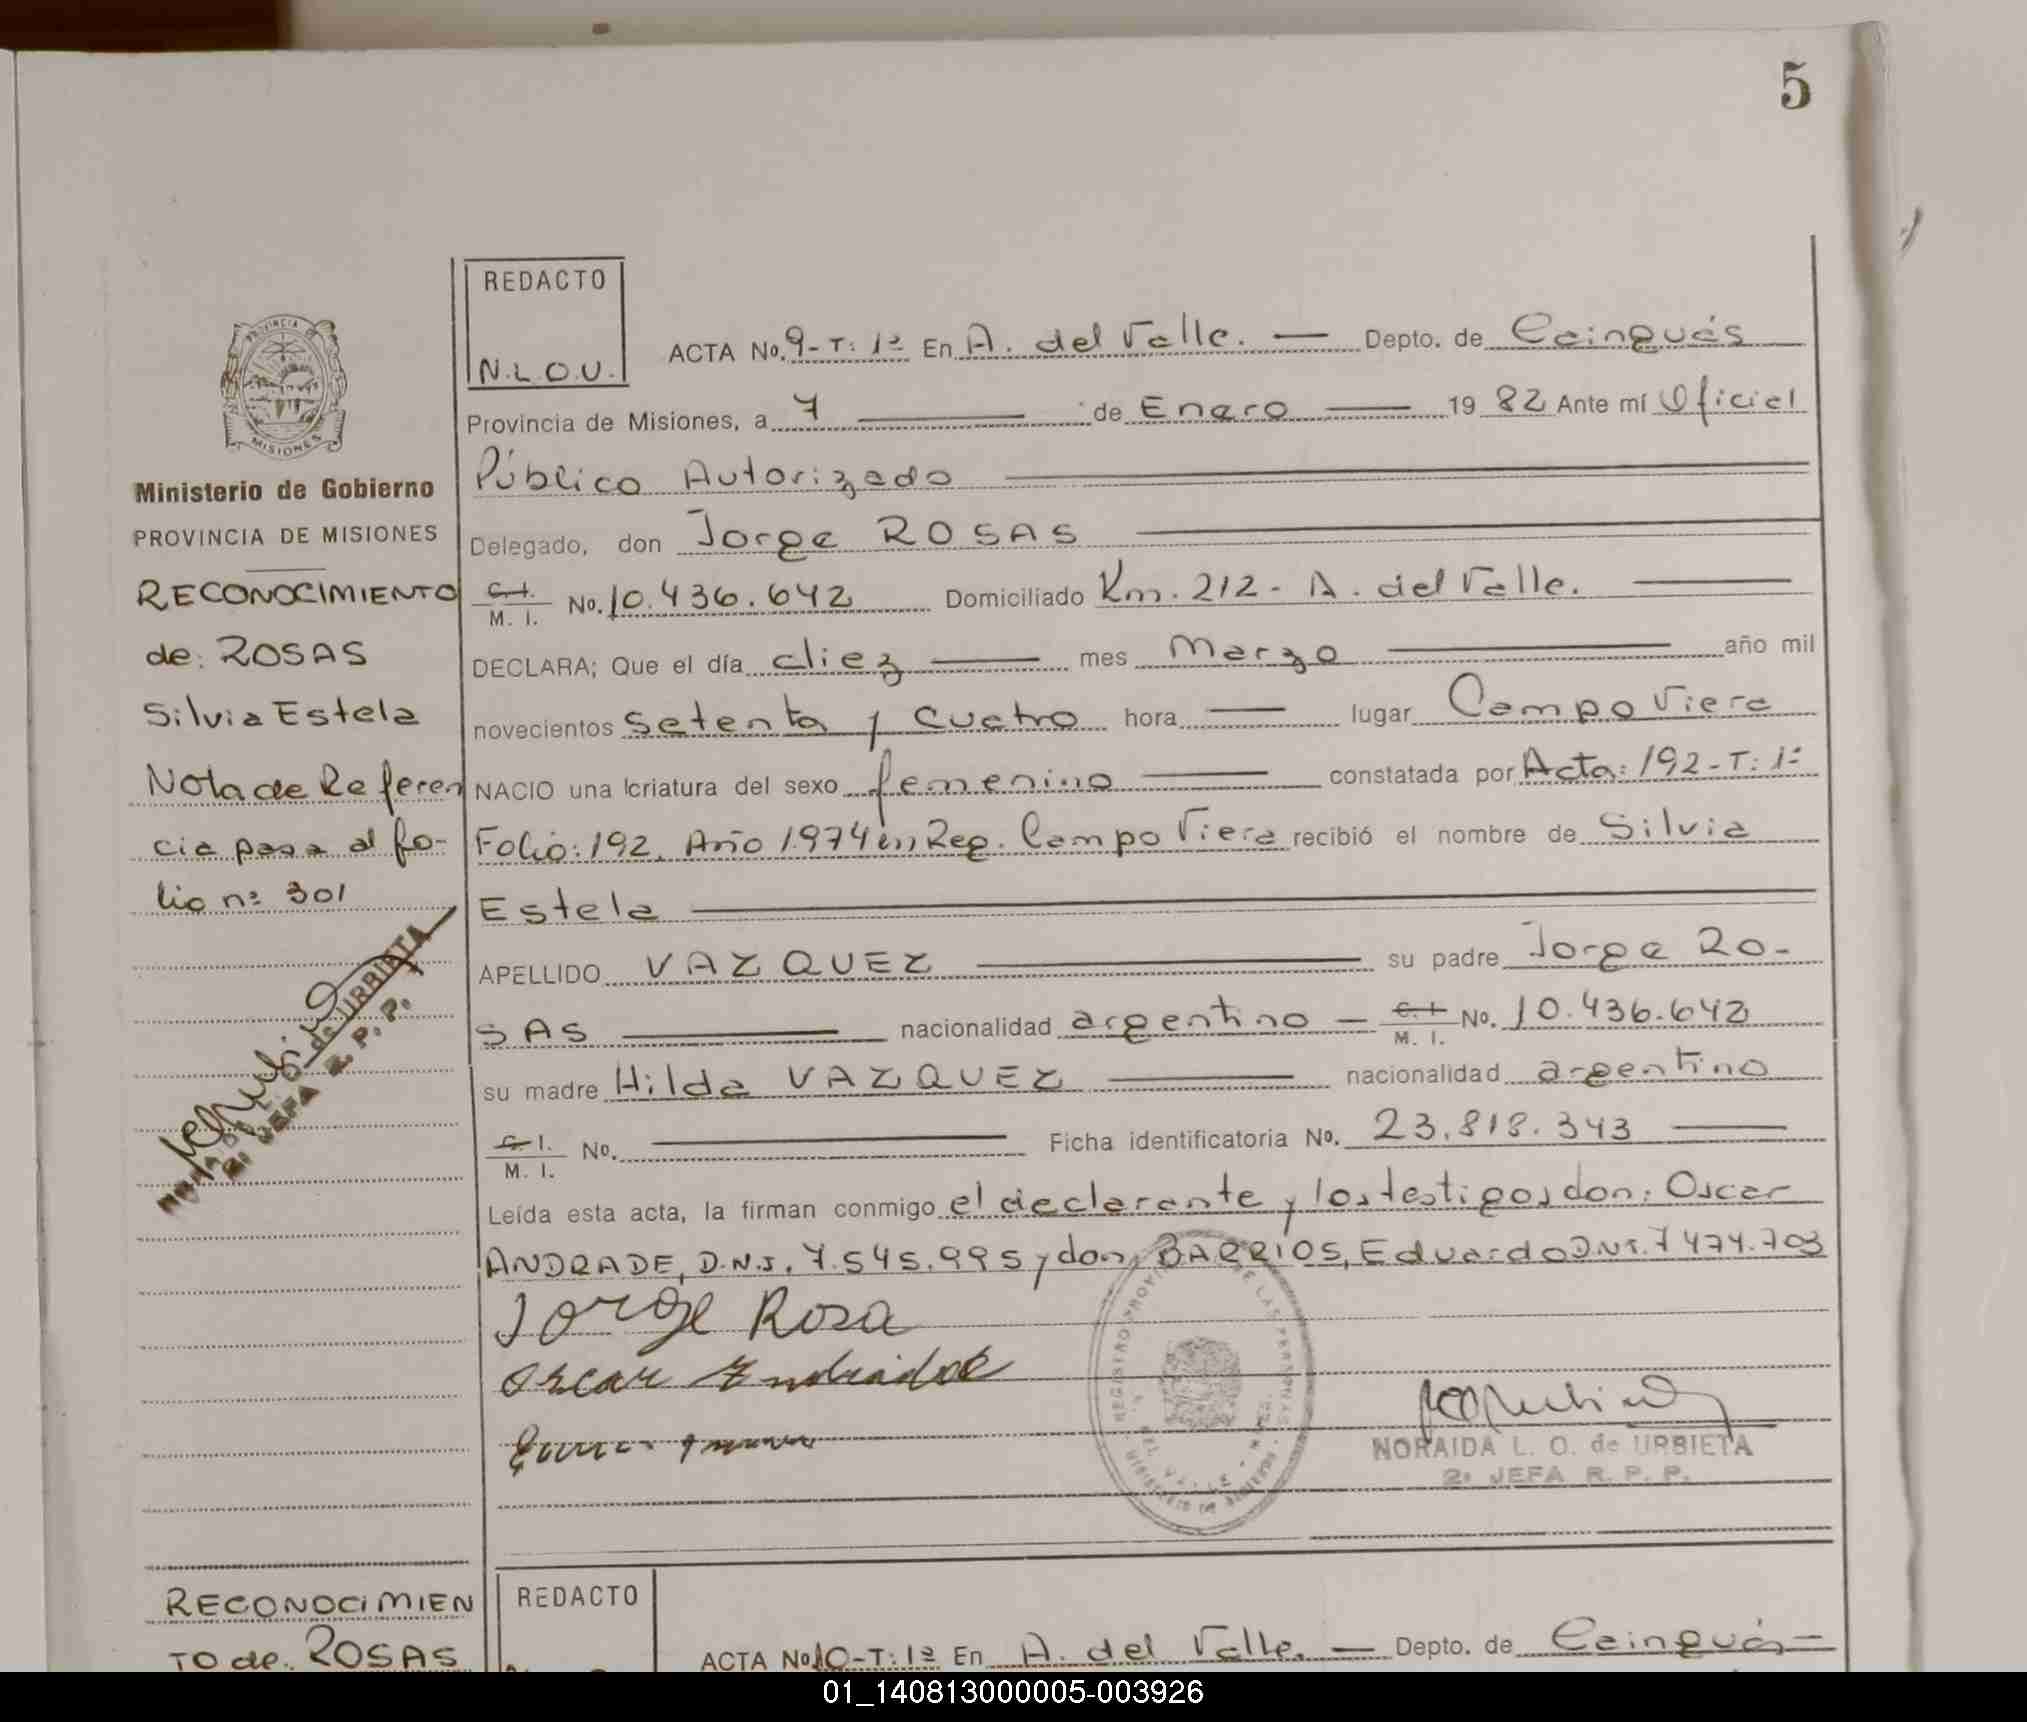 5
REDACTO
N.L.O.U.
ACTA No. 9-T: 1ª En A. del Valle. — Depto. de Cainguás
Provincia de Misiones, a 7 — de Enero — 19 82 Ante mí Oficial
Público Autorizado
Delegado, don Jorge ROSAS
C.I. M. I. No. 10.436.642 Domiciliado Km. 212 - A. del Valle.
DECLARA; Que el día diez — mes Marzo — año mil
novecientos setenta y cuatro hora — lugar Campo Viera
NACIO una criatura del sexo femenino — constatada por Acta: 192-T: 1ª
Folio: 192. Año 1974 en Reg. Campo Viera recibió el nombre de Silvia
Estela
APELLIDO VAZQUEZ — su padre Jorge RO-
SAS — nacionalidad argentino — C.I. M. I. No. 10.436.642
su madre Hilda VAZQUEZ — nacionalidad argentino
C.I. M. I. No. — Ficha identificatoria No. 23.818.343
Leída esta acta, la firman conmigo el declarante y los testigos don: Oscar
ANDRADE, D.N.I. 7.545.995 y don, BARRIOS, Eduardo D.N.I. 7 474.703
Jorge Rosa
Oscar Andrade
NORAIDA L. O. de URBIETA
2ª JEFA R. P. P.
PROVINCIA DE
MISIONES
Ministerio de Gobierno
PROVINCIA DE MISIONES
RECONOCIMIENTO
de: ROSAS
Silvia Estela
Nota de Referen
cia pasa al fo-
lio nº 301
de URBIETA
JEFA R. P. P.
RECONOCIMIEN
TO de. ROSAS
REDACTO
ACTA No. 10-T: 1ª En A. del Valle. — Depto. de Cainguás —
01_140813000005-003926